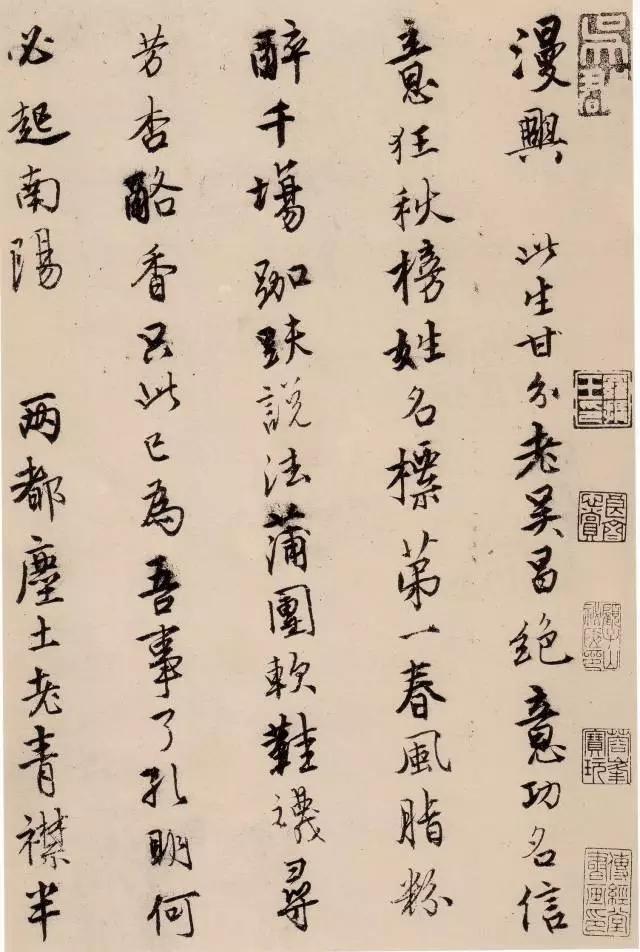 漫興 此生甘分老吳昌絕意功名信
意狂秋榜姓名標第一春風脂粉
醉千場跏趺說法蒲團軟鞋襪尋
芳杏酪香只此已為吾事了孔明何
必起南陽 兩都塵土老青襟半
蓉峯寶玩
傳經堂書画印